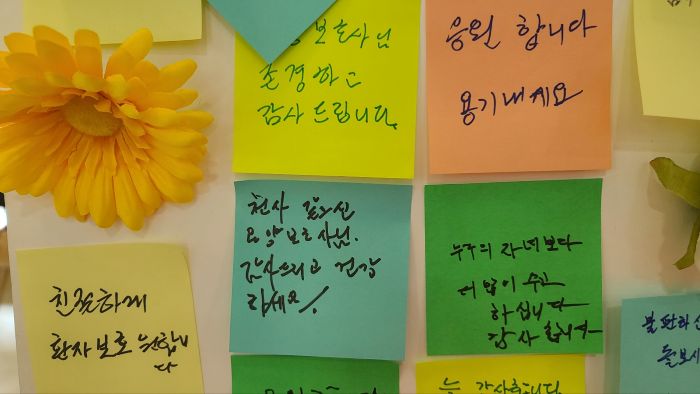 보호사님
존경하고
감사드립니다.
응원 합니다
용기내세요
천사 같으신
요양보호사님.
감사드리고 건강
하세요!
누구의 자녀보다
더 많이 수고
하십니다
감사합니다
친절하게
환자보호 원합니
다
불편하신
돌보시
늘 감사합니다